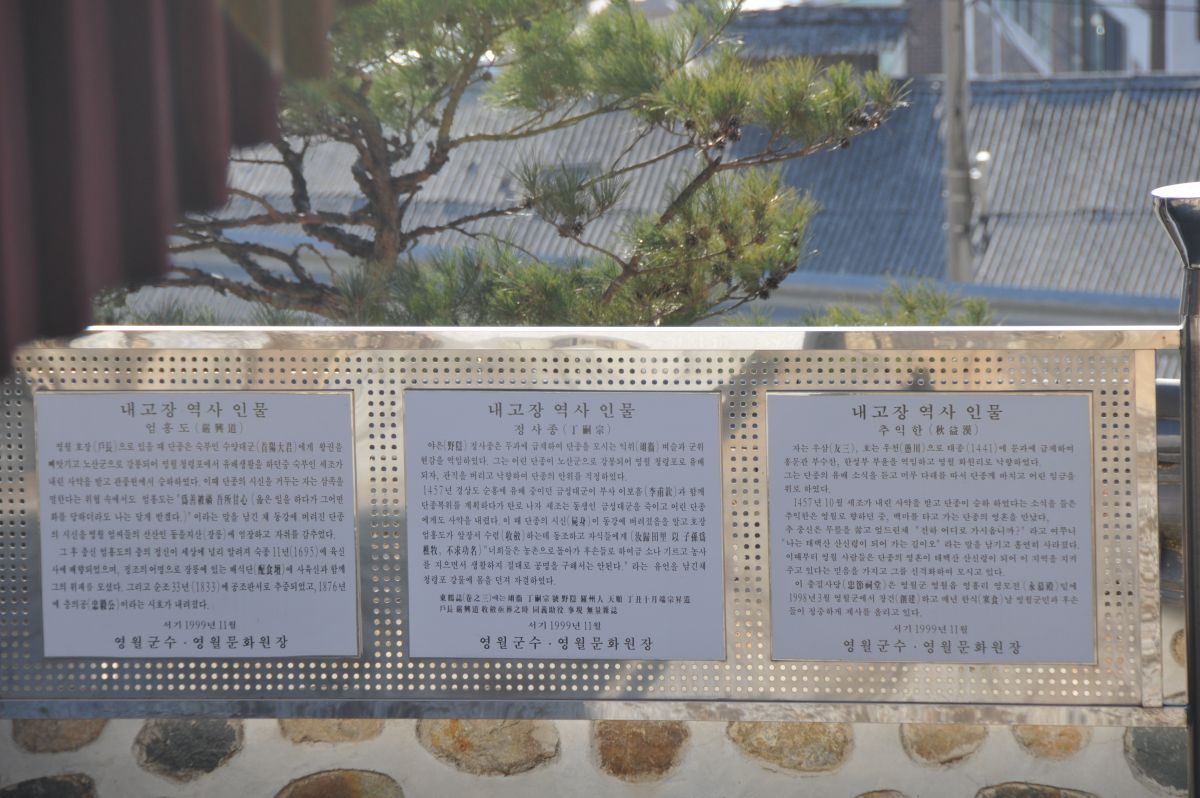 내고장 역사 인물
엄흥도(嚴興道)
영월 호장(戶長)으로 있을 때 단종은 숙부인 수양대군(首陽大君)에게 왕권을
빼앗기고 노산군으로 강봉되어 영월 청령포에서 유배생활을 하던중 숙부인 세조가
내린 사약을 받고 관풍헌에서 승하하였다. 이때 단종의 시신을 거두는 자는 삼족을
멸한다는 위협 속에서도 엄흥도는 "爲善被禍 吾所甘心 (옳은 일을 하다가 그어떤
화를 당하더라도 나는 달게 받겠다.)" 이라는 말을 남긴 채 동강에 버려진 단종
의 시신을 영월 엄씨들의 선산인 동을지산(장릉)에 암장하고 자취를 감추었다.
그 후 충신 엄흥도의 충의 정신이 세상에 널리 알려져 숙종 11년(1695)에 육신
사에 배향되었으며, 정조의 어명으로 장릉에 있는 배식단(配食壇)에 사육신과 함께
그의 위패를 모셨다. 그리고 순조33년(1833)에 공조판서로 추증되었고, 1876년
에 충의공(忠毅公)이라는 시호가 내려졌다.
서기 1999년 11월
영월군수 · 영월문화원장
내고장 역사 인물
정사종(丁嗣宗)
야은(野隱) 정사종은 무과에 급제하여 단종을 모시는 익위(翊衛) 벼슬과 군위
현감을 역임하였다. 그는 어린 단종이 노산군으로 강봉되어 영월 청령포로 유배
되자, 관직을 버리고 낙향하여 단종의 안위를 걱정하였다.
1457년 경상도 순흥에 유배 중이던 금성대군이 부사 이보흠(李甫欽)과 함께
단종복위를 계획하다가 탄로 나자 세조는 동생인 금성대군을 죽이고 어린 단종
에게도 사약을 내렸다. 이 때 단종의 시신(屍身)이 동강에 버려졌음을 알고 호장
엄흥도가 앞장서 수렴(收斂)하는데 동조하고 자식들에게 (汝歸田里 以子孫爲
樵牧, 不求功名) "너희들은 농촌으로돌아가 후손들로 하여금 소나 기르고 농사
를 지으면서 생활하지 절대로 공명을 구해서는 안된다." 라는 유언을 남긴채
청령포 강물에 몸을 던져 자결하였다.
서기 1999년 11월
영월군수 · 영월문화원장
내고장 역사 인물
추익한(秋益漢)
자는 우삼(友三), 호는 우천(愚川)으로 태종(1441)에 문과에 급제하여
홍문관 부수찬, 한성부 부윤을 역임하고 영월 화원리로 낙향하였다.
그는 단종의 유배 소식을 듣고 머루 다래를 따서 단종께 바치고 어린 임금을
위로 하였다.
1457년 10월 세조가 내린 사약을 받고 단종이 승하 하였다는 소식을 들은
추익한은 영월로 향하던 중, 백마를 타고 가는 단종의 영혼을 만났다.
추 충신은 무릎을 꿇고 엎드린채 "전하 어디로 가시옵니까?" 라고 여쭈니
"나는 태백산 산신령이 되어 가는 길이오" 라는 말을 남기고 홀연히 사라졌다.
이때부터 영월 사람들은 단종의 영혼이 태백산 산신령이 되어 이 지역을 지켜
주고 있다는 믿음을 가지고 그를 신격화하여 모시고 있다.
이 충절사당(忠節祠堂)은 영월군 영월읍 영흥리 영모전(永慕殿)밑에
1998년3월 영월군에서 창건(創建)하고 매년 한식(寒食)날 영월군민과 후손
들이 정중하게 제사를 올리고 있다.
서기 1999년 11월
영월군수 · 영월문화원장